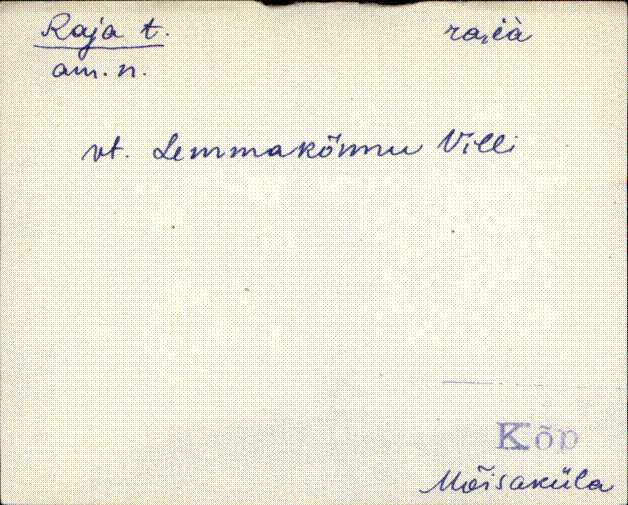 Raja t. raià
am. n.
vt. Lemmakõnnu Villi
Kõp
Mõisaküla